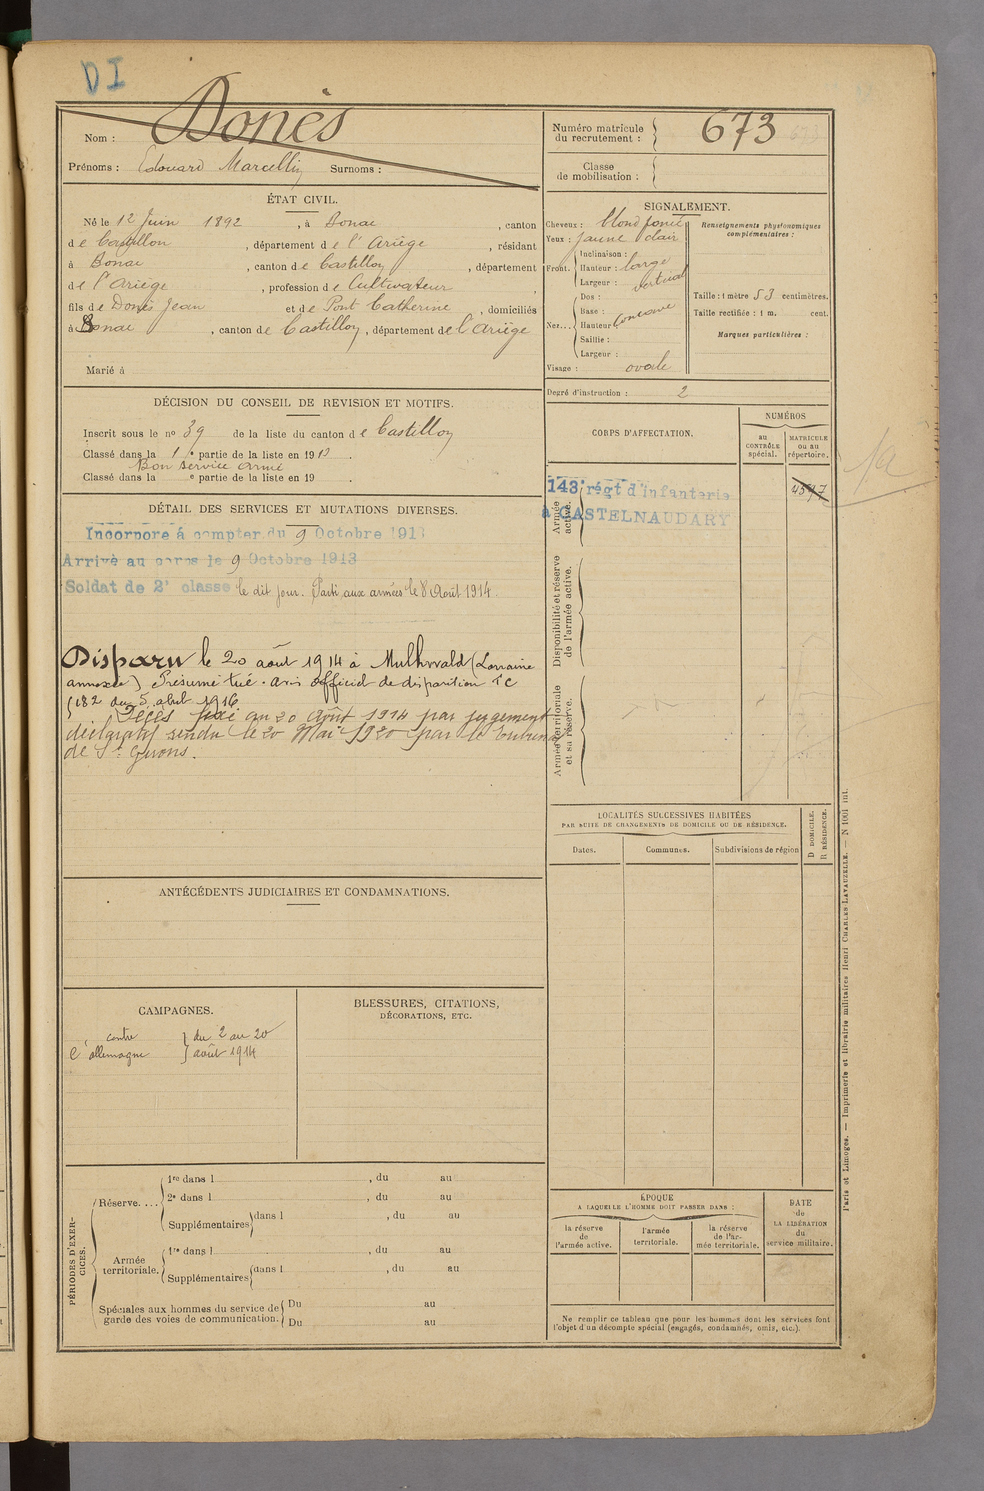 DI
Nom : Donès
Prénoms : Edouard Marcellin Surnoms :
Numéro matricule du recrutement : 673
Classe de mobilisation :
ÉTAT CIVIL.
Né le 12 Juin 1892, à Bonac, canton
de Castillon, département de l'Ariège, résidant
à Bonac, canton de Castillon, département
de l'Ariège, profession de Cultivateur,
fils de Donès Jean et de Pont Catherine, domiciliés
à Bonac, canton de Castillon, département de l'Ariège
Marié à
SIGNALEMENT.
Cheveux : blond foncé
Yeux : jaune clair
Front. Inclinaison :
Hauteur : large
Largeur : vertical
Nez... Dos :
Base :
Hauteur concave
Saillie :
Largeur :
Visage : ovale
Renseignements physionomiques complémentaires :
Taille : 1 mètre 53 centimètres.
Taille rectifiée : 1 m. cent.
Marques particulières :
Degré d'instruction : 2
DÉCISION DU CONSEIL DE REVISION ET MOTIFS.
Inscrit sous le nº 39 de la liste du canton de Castillon
Classé dans la 1e partie de la liste en 1913.
Bon service armé
Classé dans la e partie de la liste en 19 .
DÉTAIL DES SERVICES ET MUTATIONS DIVERSES.
Incorporé à compter du 9 Octobre 1913
Arrivé au corps le 9 Octobre 1913
Soldat de 2e classe le dit jour. Parti aux armées le 8 Août 1914.
Disparu le 20 août 1914 à Mulhwald (Lorraine
annexée) Présumé tué. avis officiel de disparition
du 5 abril 1916
Décès fixé au 20 Août 1914 par jugement
déclaratif rendu le 20 Mai 1920 par le tribunal
de St Girons.
CORPS D'AFFECTATION.
NUMÉROS
au CONTRÔLE spécial.
MATRICULE ou au répertoire.
Armée active.
143e régt d'Infanterie
à CASTELNAUDARY
4547
Disponibilité et réserve de l'armée active.
Armée territoriale et sa réserve.
LOCALITÉS SUCCESSIVES HABITÉES
PAR SUITE DE CHANGEMENTS DE DOMICILE OU DE RÉSIDENCE.
Dates.
Communes.
Subdivisions de région
D DOMICILE.
R RÉSIDENCE.
ANTÉCÉDENTS JUDICIAIRES ET CONDAMNATIONS.
CAMPAGNES.
contre l'allemagne
du 2 au 20
août 1914
BLESSURES, CITATIONS,
DÉCORATIONS, ETC.
PÉRIODES D'EXERCICES.
Réserve....
1re dans l , du au
2e dans l , du au
Supplémentaires dans l , du au
Armée territoriale.
1re dans l , du au
Supplémentaires dans l , du au
Spéciales aux hommes du service de garde des voies de communication:
Du au
Du au
ÉPOQUE
A LAQUELLE L'HOMME DOIT PASSER DANS :
la réserve de l'armée active.
l'armée territoriale.
la réserve de l'armée territoriale.
DATE de LA LIBÉRATION du service militaire.
Ne remplir ce tableau que pour les hommes dont les services font
l'objet d'un décompte spécial (engagés, condamnés, omis, etc.).
Paris et Limoges. — Imprimerie et librairie militaires Henri CHARLES-LAVAUZELLE. — N 1001 int.